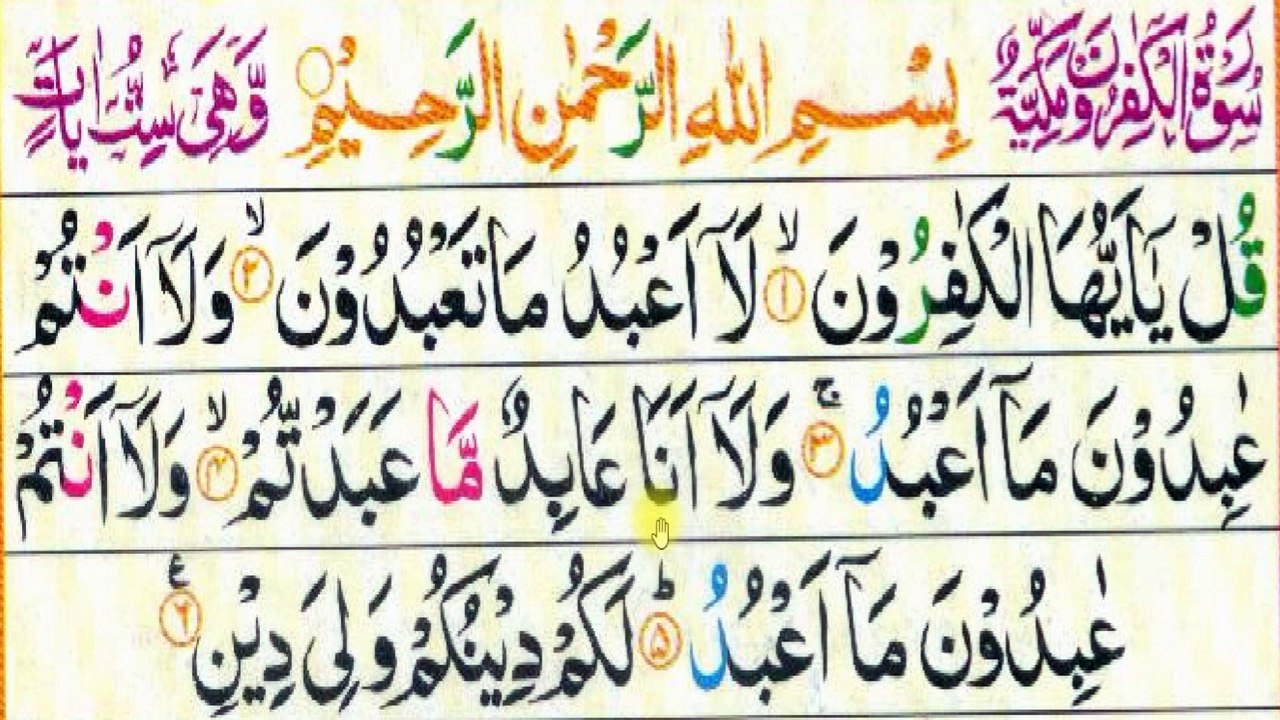 سُوْرَةُ الْكٰفِرُوْنَ مَكِّيَّةٌ بِسْمِ اللهِ الرَّحْمٰنِ الرَّحِيْمِ وَّهِيَ سِتُّ اٰيَاتٍ
قُلْ يٰۤاَيُّهَا الْكٰفِرُوْنَ ۙ﴿۱﴾ لَاۤ اَعْبُدُ مَا تَعْبُدُوْنَ ۙ﴿۲﴾ وَلَاۤ اَنْتُمْ
عٰبِدُوْنَ مَاۤ اَعْبُدُ ۚ﴿۳﴾ وَلَاۤ اَنَا عَابِدٌ مَّا عَبَدْتُّمْ ۙ﴿۴﴾ وَلَاۤ اَنْتُمْ
عٰبِدُوْنَ مَاۤ اَعْبُدُ ؕ﴿۵﴾ لَكُمْ دِيْنُكُمْ وَلِيَ دِيْنِ ﴿۶﴾ ع